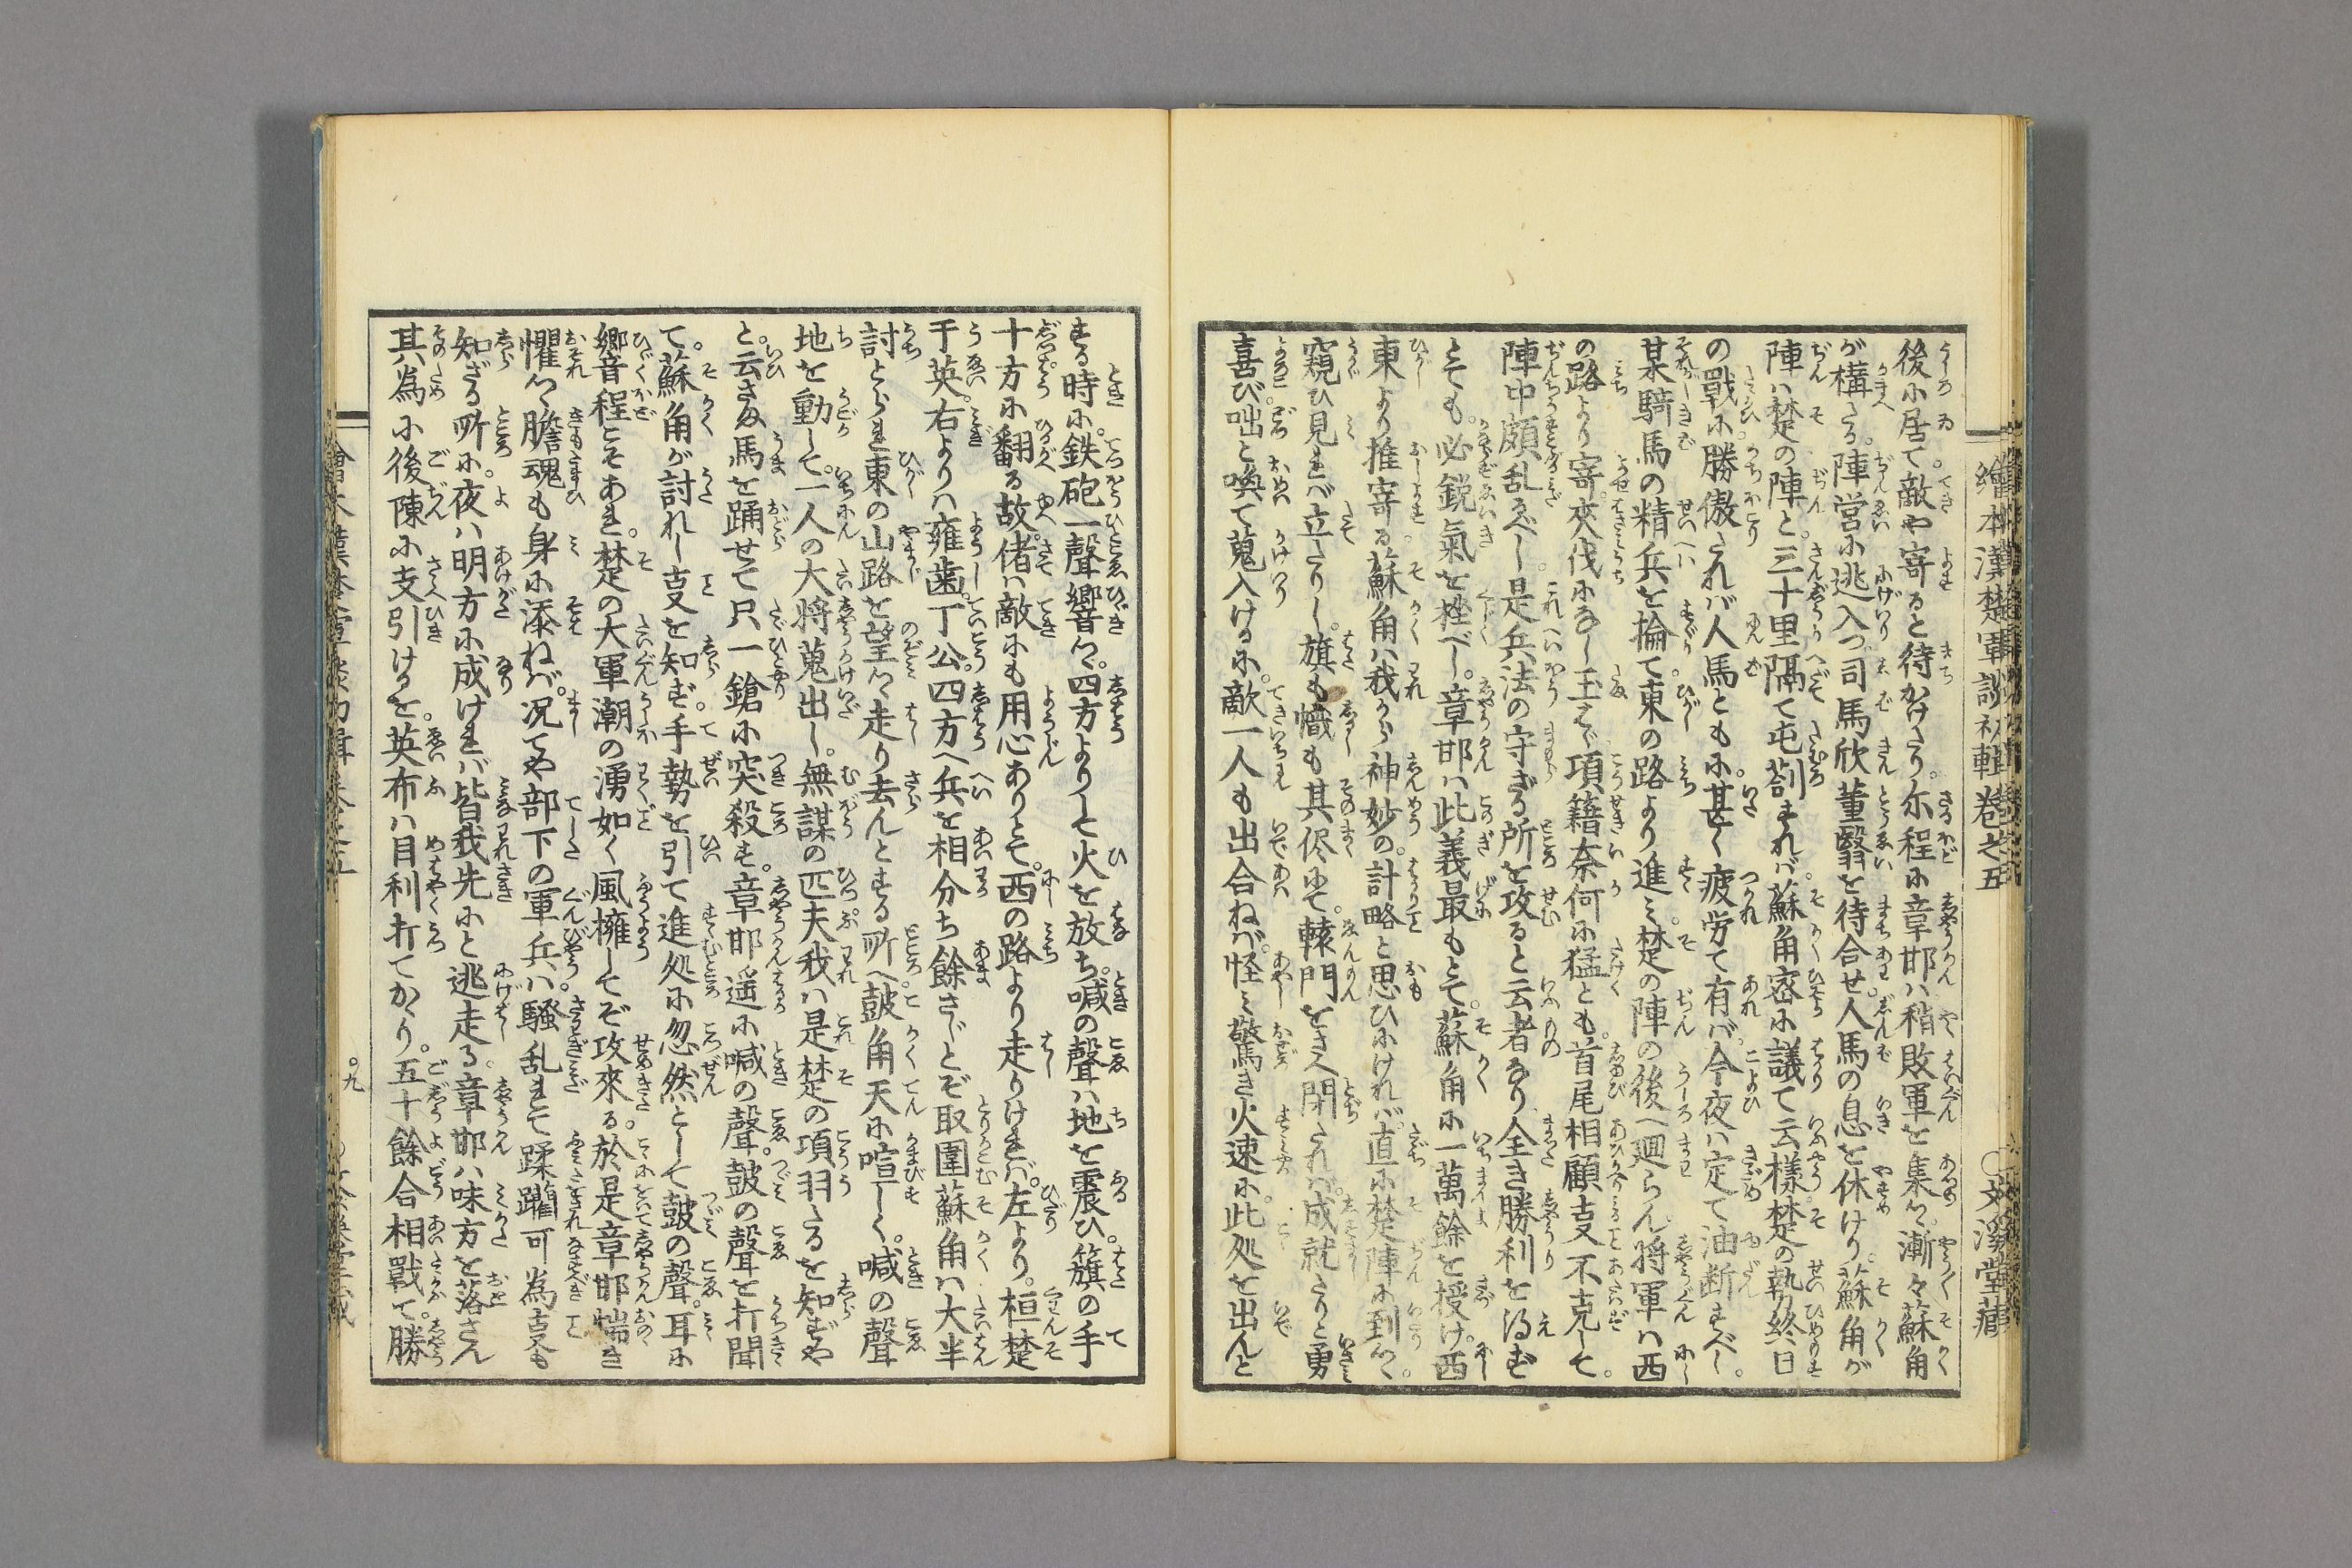 繪本漢楚軍談初輯巻之五 〇文溪堂藏
後に居て。敵や寄ると待かけたり。尓程に章邯ハ稍敗軍を集め。漸々蘇角
が構たる。陣営に逃入つ司馬欣董翳を待合せ。人馬の息を休けり。蘇角が
陣ハ楚の陣と。三十里隔て屯劄すれバ。蘇角密に議て云様。楚の勢終日
の戰に。勝傲たれバ人馬ともに。甚く疲労て有バ。今夜ハ定て油断すべし。
某騎馬の精兵を掄て。東の路より進ミ。楚の陣の後へ廻らん。將軍ハ西
の路より寄。夾伐になし玉ハヾ。項籍奈何に猛とも。首尾相顧支不克して。
陣中頗乱るべし。是兵法の守ざる所を攻ると云者なり。全き勝利を得ず
とても。必鋭氣を挫べし。章邯ハ此義最もとて。蘇角に一萬餘を授け。西
東より推寄る。蘇角ハ我から神妙の。計略と思ひにけれバ。直に楚陣に到りつゝ。
窺ひ見れバ立たりし。旗も幟も其侭にて。轅門をさへ閉されバ。成就たりと勇
喜び咄と喚て蒐入ける に。敵一人も出合ねバ。怪ミ驚き火速に。此処を出んと
する時に。鉄砲一聲響つゝ。四方よりして火を放ち。喊の聲ハ地を震ひ。籏の手
十方に翻る故。偖ハ敵にも用心ありとて。西の路より走りけれバ。左より。桓楚
于英。右よりハ雍歯。丁公。四方へ兵を相分ち餘さじとぞ取圍。蘇角ハ大半
討とられ東の山路を望つゝ走り去んとする所へ。皷角天に喧しく。喊の聲
地を動して。一人の大将蒐出し。無謀の匹夫我ハ是楚の項羽たるを知ずや
と。云さま馬を踊せて只一鎗に突殺す。章邯遥に喊の聲。皷の聲を打聞
て。蘇角が討れし支を知ず。手勢を引て進処に忽然として皷の聲。耳に
響程こそあれ。楚の大軍潮の湧如く風擁してぞ攻來る。於是章邯惴き
懼つゝ膽魂も身に添ねバ。况てや部下の軍兵ハ。騒乱れて蹂躙可為支も
知ざる所に。夜ハ明方に成けれバ皆我先にと逃走る。章邯ハ味方を落さん
其為に後陳に支引けるを。英布ハ目利打てかゝり。五十餘合相戰て。勝
繪本漢楚軍談初輯巻之五
〇九
〇文溪堂藏